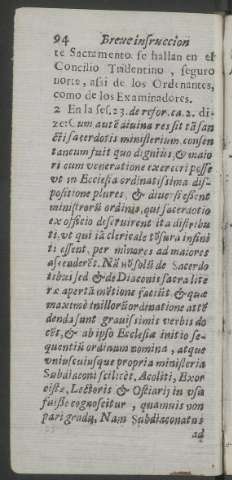 94 Breve insruccion
te Sacramento se hallan en el
Concilio Tridentino, seguro
norte, assi de los Ordenantes,
como de los Examinadores.
2 En la ses. 23. de refor. ca. 2. di-
ze: Cum autē diuina res sit tā san
cti sacerdotis ministerium, consen
taneum fuit quo dignius, & maio
ri cum veneratione exerceri posse
vt in Ecclesia ordinatissima dis-
positione plures, & diuersi essent
ministrorū ordines, qui sacerdotio
ex officio deseruirent ita distribu
ti, vt qui iā clericale tōsura insini
ti essent, per minores ad maiores
ascenderēt. Nā nō solū de Sacerdo
tibus sed & de Diaconis sacra lite
ræ apertā mētione faciūt & quæ
maxime in illorū ordinatione attē
denda sunt grauissimis verbis do
cēt, & ab ipso Ecclesia initio se-
quentiū ordinum nomina, atque
vniuscuiusque propria ministeria
Subdiaconi scilicet, Acoliti, Exor
cistæ, Lectoris & Ostiarij in vsu
fuisse cognoscitur, quamuis non
pari gradu, Nam Subdiaconatus
ad